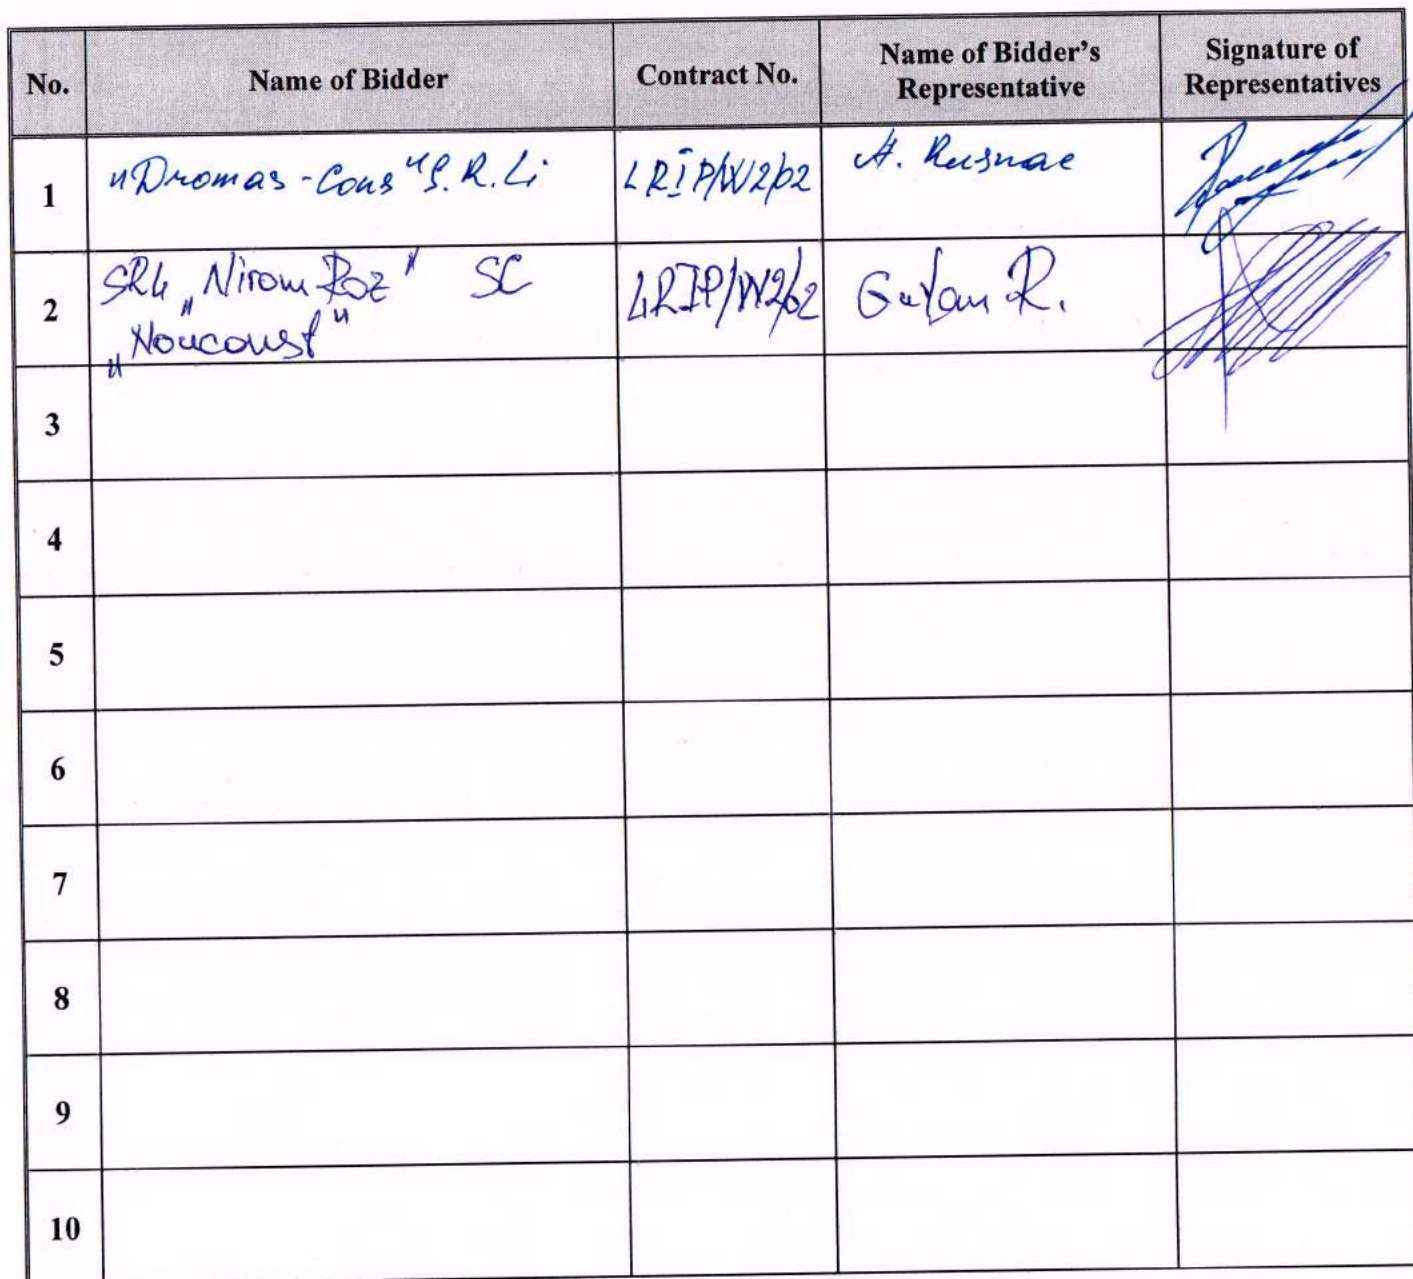 No. Name of Bidder Contract No. Name of Bidder's Representative Signature of Representatives
1 "Dromas-Cons" S.R.L. LRIP/W2/02 A. Rusnac
2 SRL „Nirom Roz" SC LRIP/W2/02 R.
3
4
5
6
7
8
9
10